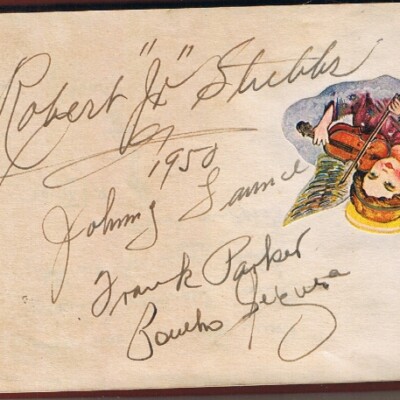 Robert "Jr" Stubbs
1950
Johnny Faunce
Frank Parker
Pancho Segura